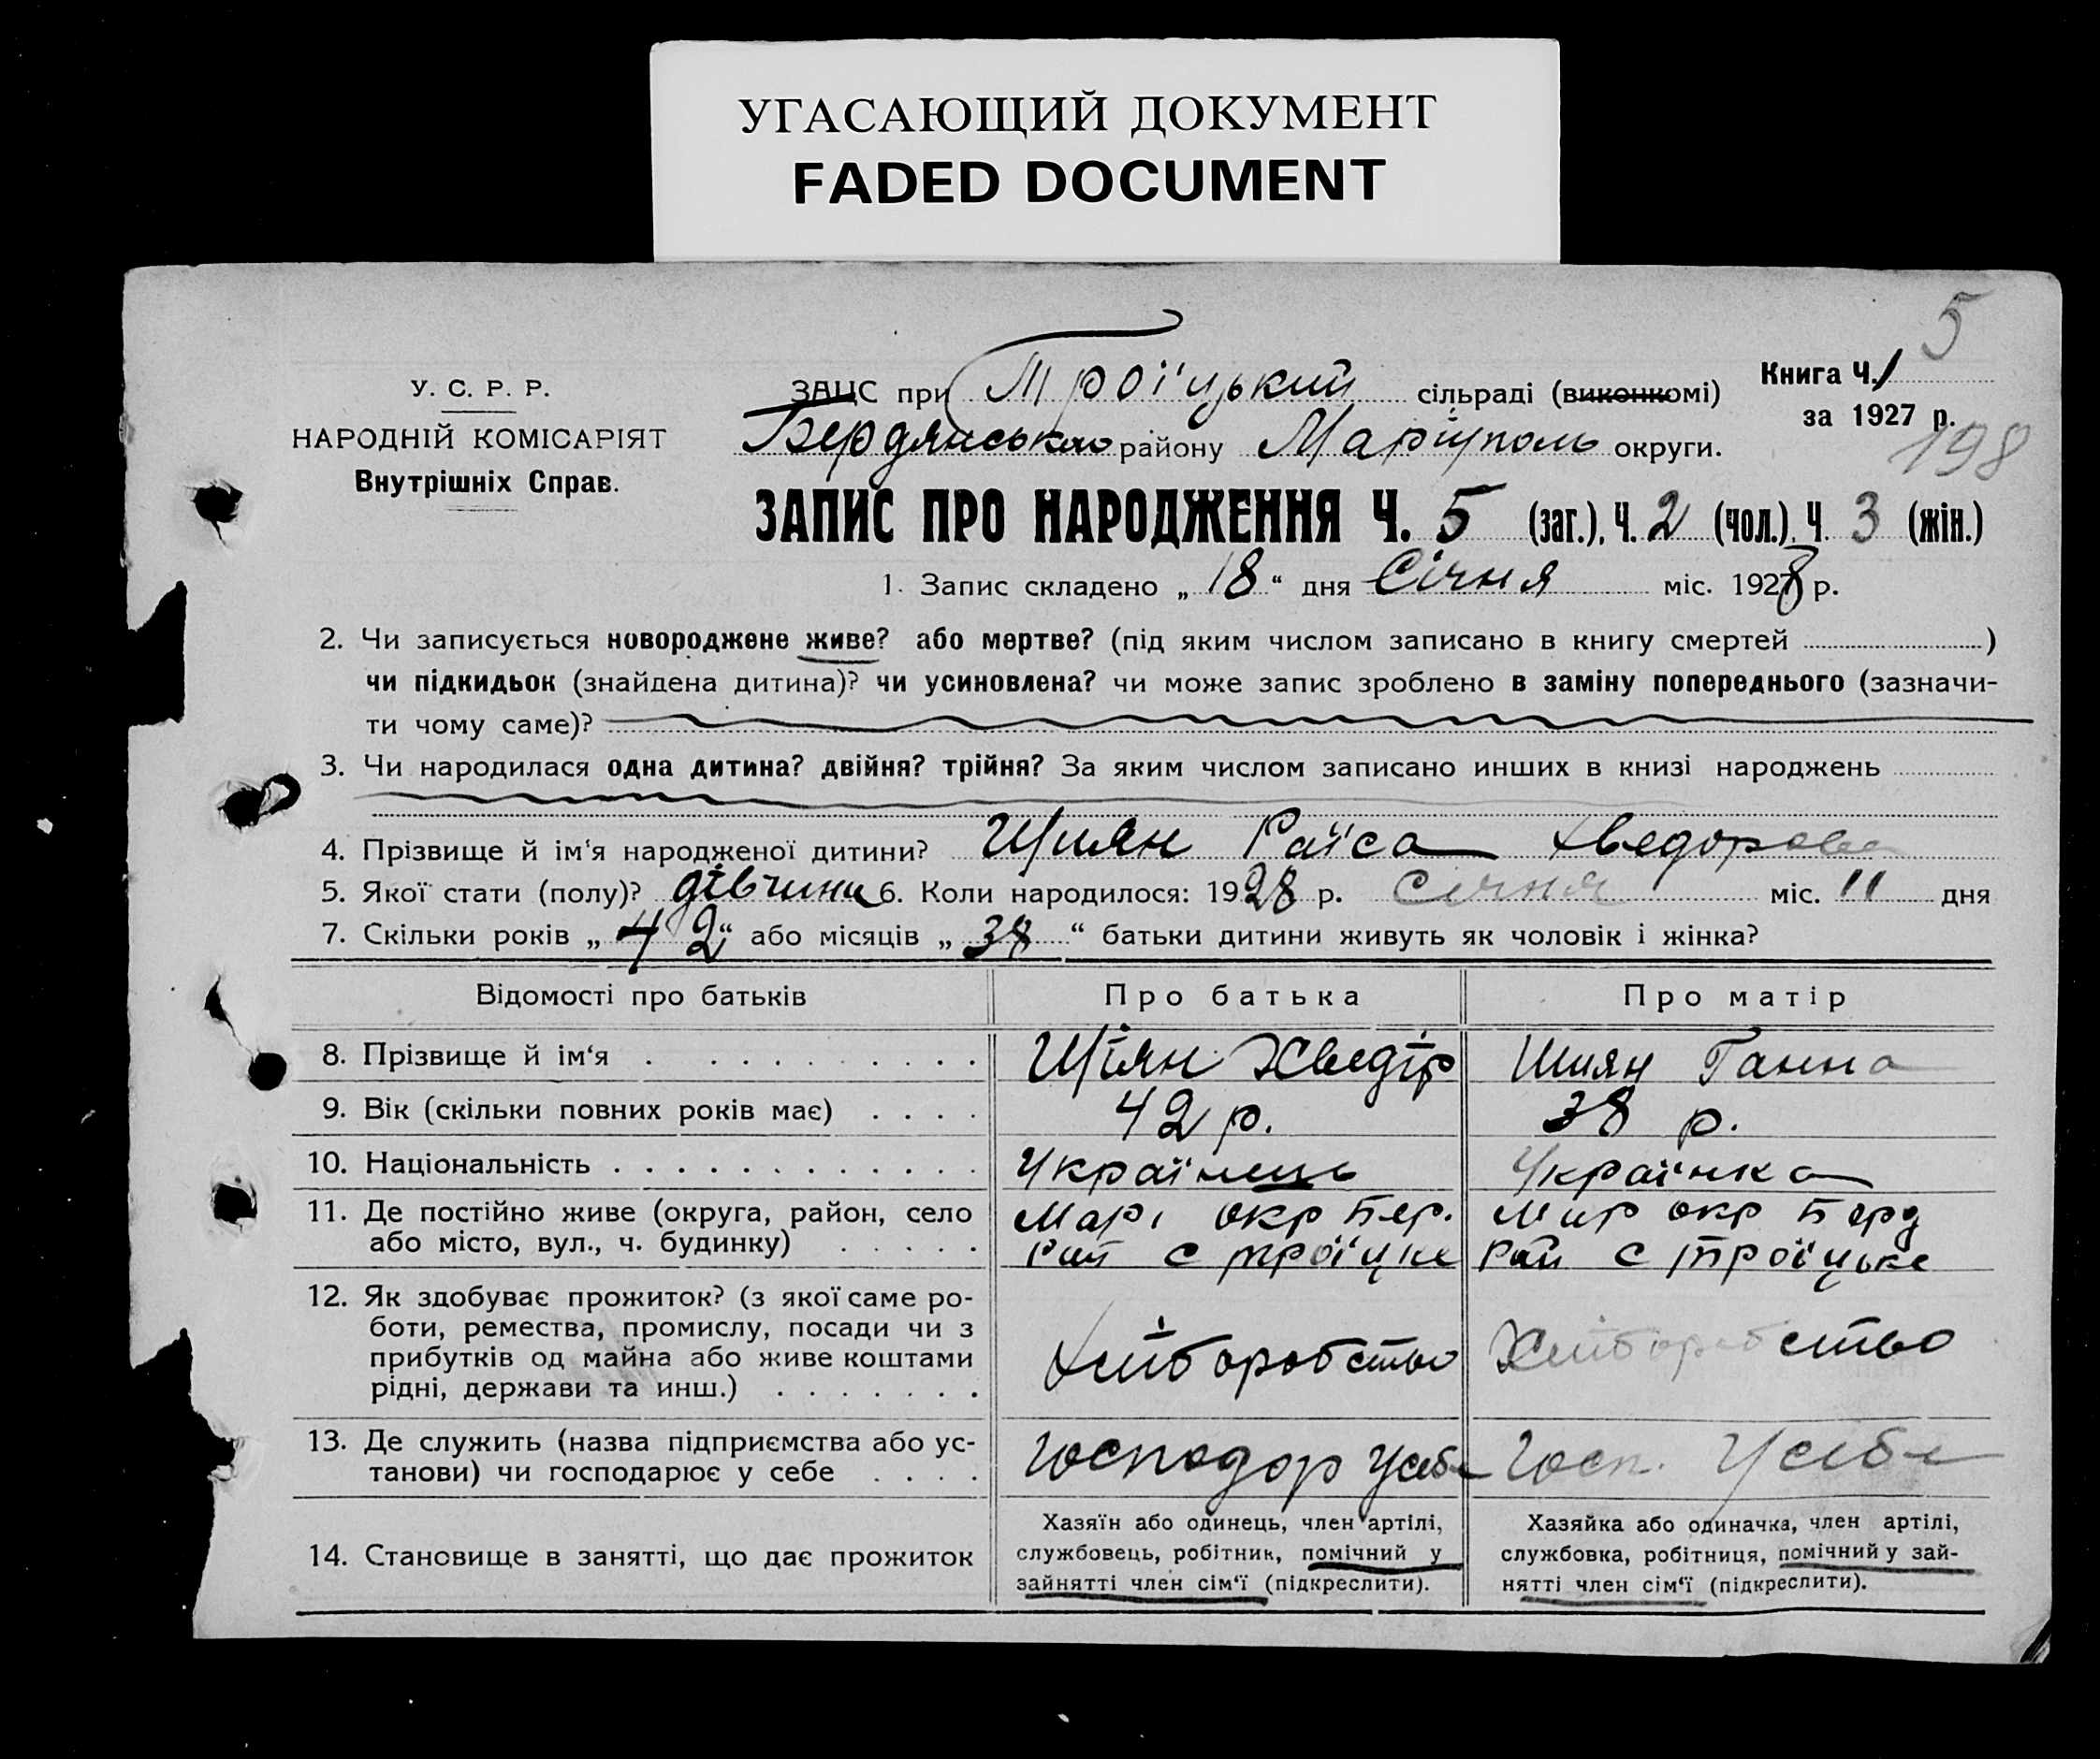 УГАСАЮЩИЙ ДОКУМЕНТ
FADED DOCUMENT
5
У. С. Р. Р.
НАРОДНІЙ КОМІСАРІЯТ
Внутрішніх Справ.
ЗАЦС при Троїцький сільраді (виконкомі)
Бердянського району Маріуполь округи.
Книга Ч. 1
за 1927 р.
198
ЗАПИС ПРО НАРОДЖЕННЯ Ч. 5 (заг.), Ч. 2 (чол.), Ч. 3 (жін.)
1. Запис складено „ 18 “ дня Січня міс. 1928 р.
2. Чи записується новороджене живе? або мертве? (під яким числом записано в книгу смертей )
чи підкидьок (знайдена дитина)? чи усиновлена? чи може запис зроблено в заміну попереднього (зазначи-
ти чому саме)?
3. Чи народилася одна дитина? двійня? трійня? За яким числом записано инших в книзі народжень
4. Прізвище й ім‘я народженої дитини? Шиян Раїса Хведорова
5. Якої стати (полу)? дівчина 6. Коли народилося: 1928 р. Січня міс. 11 дня
7. Скільки років „ 42 “ або місяців „ 38 “ батьки дитини живуть як чоловік і жінка?
Відомості про батьків Про батька Про матір
8. Прізвище й ім‘я Шіян Хведір Шиян Ганна
9. Вік (скільки повних років має) 42 р. 38 р.
10. Національність Українець Українка
11. Де постійно живе (округа, район, село Марі окр Бер. Мар окр Берд
або місто, вул., ч. будинку) Рай с Троїцке Рай с Троїцьке
12. Як здобуває прожиток? (з якої саме ро-
боти, ремества, промислу, посади чи з
прибутків од майна або живе коштами
рідні, держави та инш.) Хліборобство Хліборобство
13. Де служить (назва підприємства або ус-
танови) чи господарює у себе Господар Усебе Госп. Усебе
14. Становище в занятті, що дає прожиток
Хазяїн або одинець, член артілі,
службовець, робітник, помічний у
зайнятті член сім‘ї (підкреслити).
Хазяйка або одиначка, член артілі,
службовка, робітниця, помічний у зай-
нятті член сім‘ї (підкреслити).